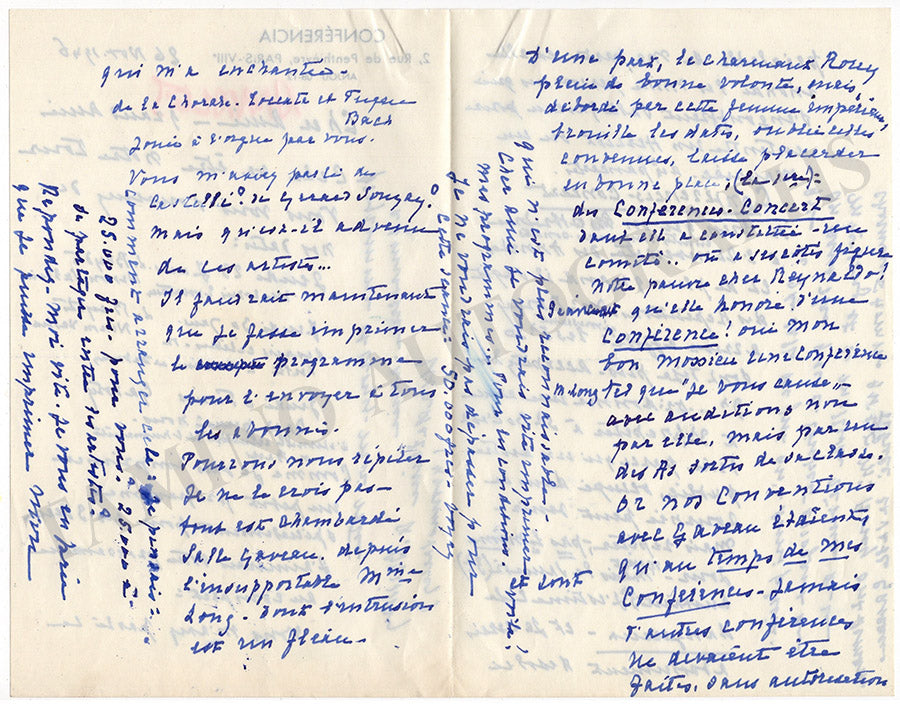 qui m'a enchantée -
de la Chorale. Toccata et Fugue
Bach
Jouée à l'orgue par vous.
Vous m'aviez parlé de
Castelli? de Gérard Souzay?
mais qu'est-il advenu
de ces artistes...
Il faudrait maintenant
que je fasse imprimer
le programme
pour l'envoyer à tous
les abonnés.
Pourrons nous répéter
Je ne le crois pas -
tout est chambardé
Salle Gaveau. depuis
l'insupportable Mme
Long. dont l'intrusion
est un fléau -
Comment arranger cela? Je pensais:
25.000 frs - pour vous? 25000 à
se partager entre les artistes?
Répondez-moi vite. Je vous en prie
que je puisse imprimer mon
D'une part, le charmant Rouy
plein de bonne volonté, mais
débordé par cette femme impérieuse,
brouille les dates, oublie celles
convenues, laisse placarder
en bonne place; (la 1ère) =
des Conférences-Concert
dont elle a constitué un
comité.. où à ses côtés figure
notre pauvre cher Reynaldo!
qu'elle honore d'une
Conférence! oui mon
bon Monsieur une Conférence
M Long
tel que je vous cause..
avec auditions, non
par elle, mais par un
des As sortes de sa classe.
Or nos Conventions
avec Gaveau étaient
qu'au temps de mes
Conférences - Jamais
d'autres conférences
ne devaient être
faites, sans autorisation
qui n'est plus raisonnable -
Cher ami je voudrais vite imprimer
mes programmes. Pour les conditions.
Je ne voudrais pas dépasser pour
Cette séance: 50.000 frs -
dont
CONFÉRENCIA
2, Rue de Penthièvre, PARIS-VIIIe
26 Nov 1946
TAMINO AUTOGRAPHS